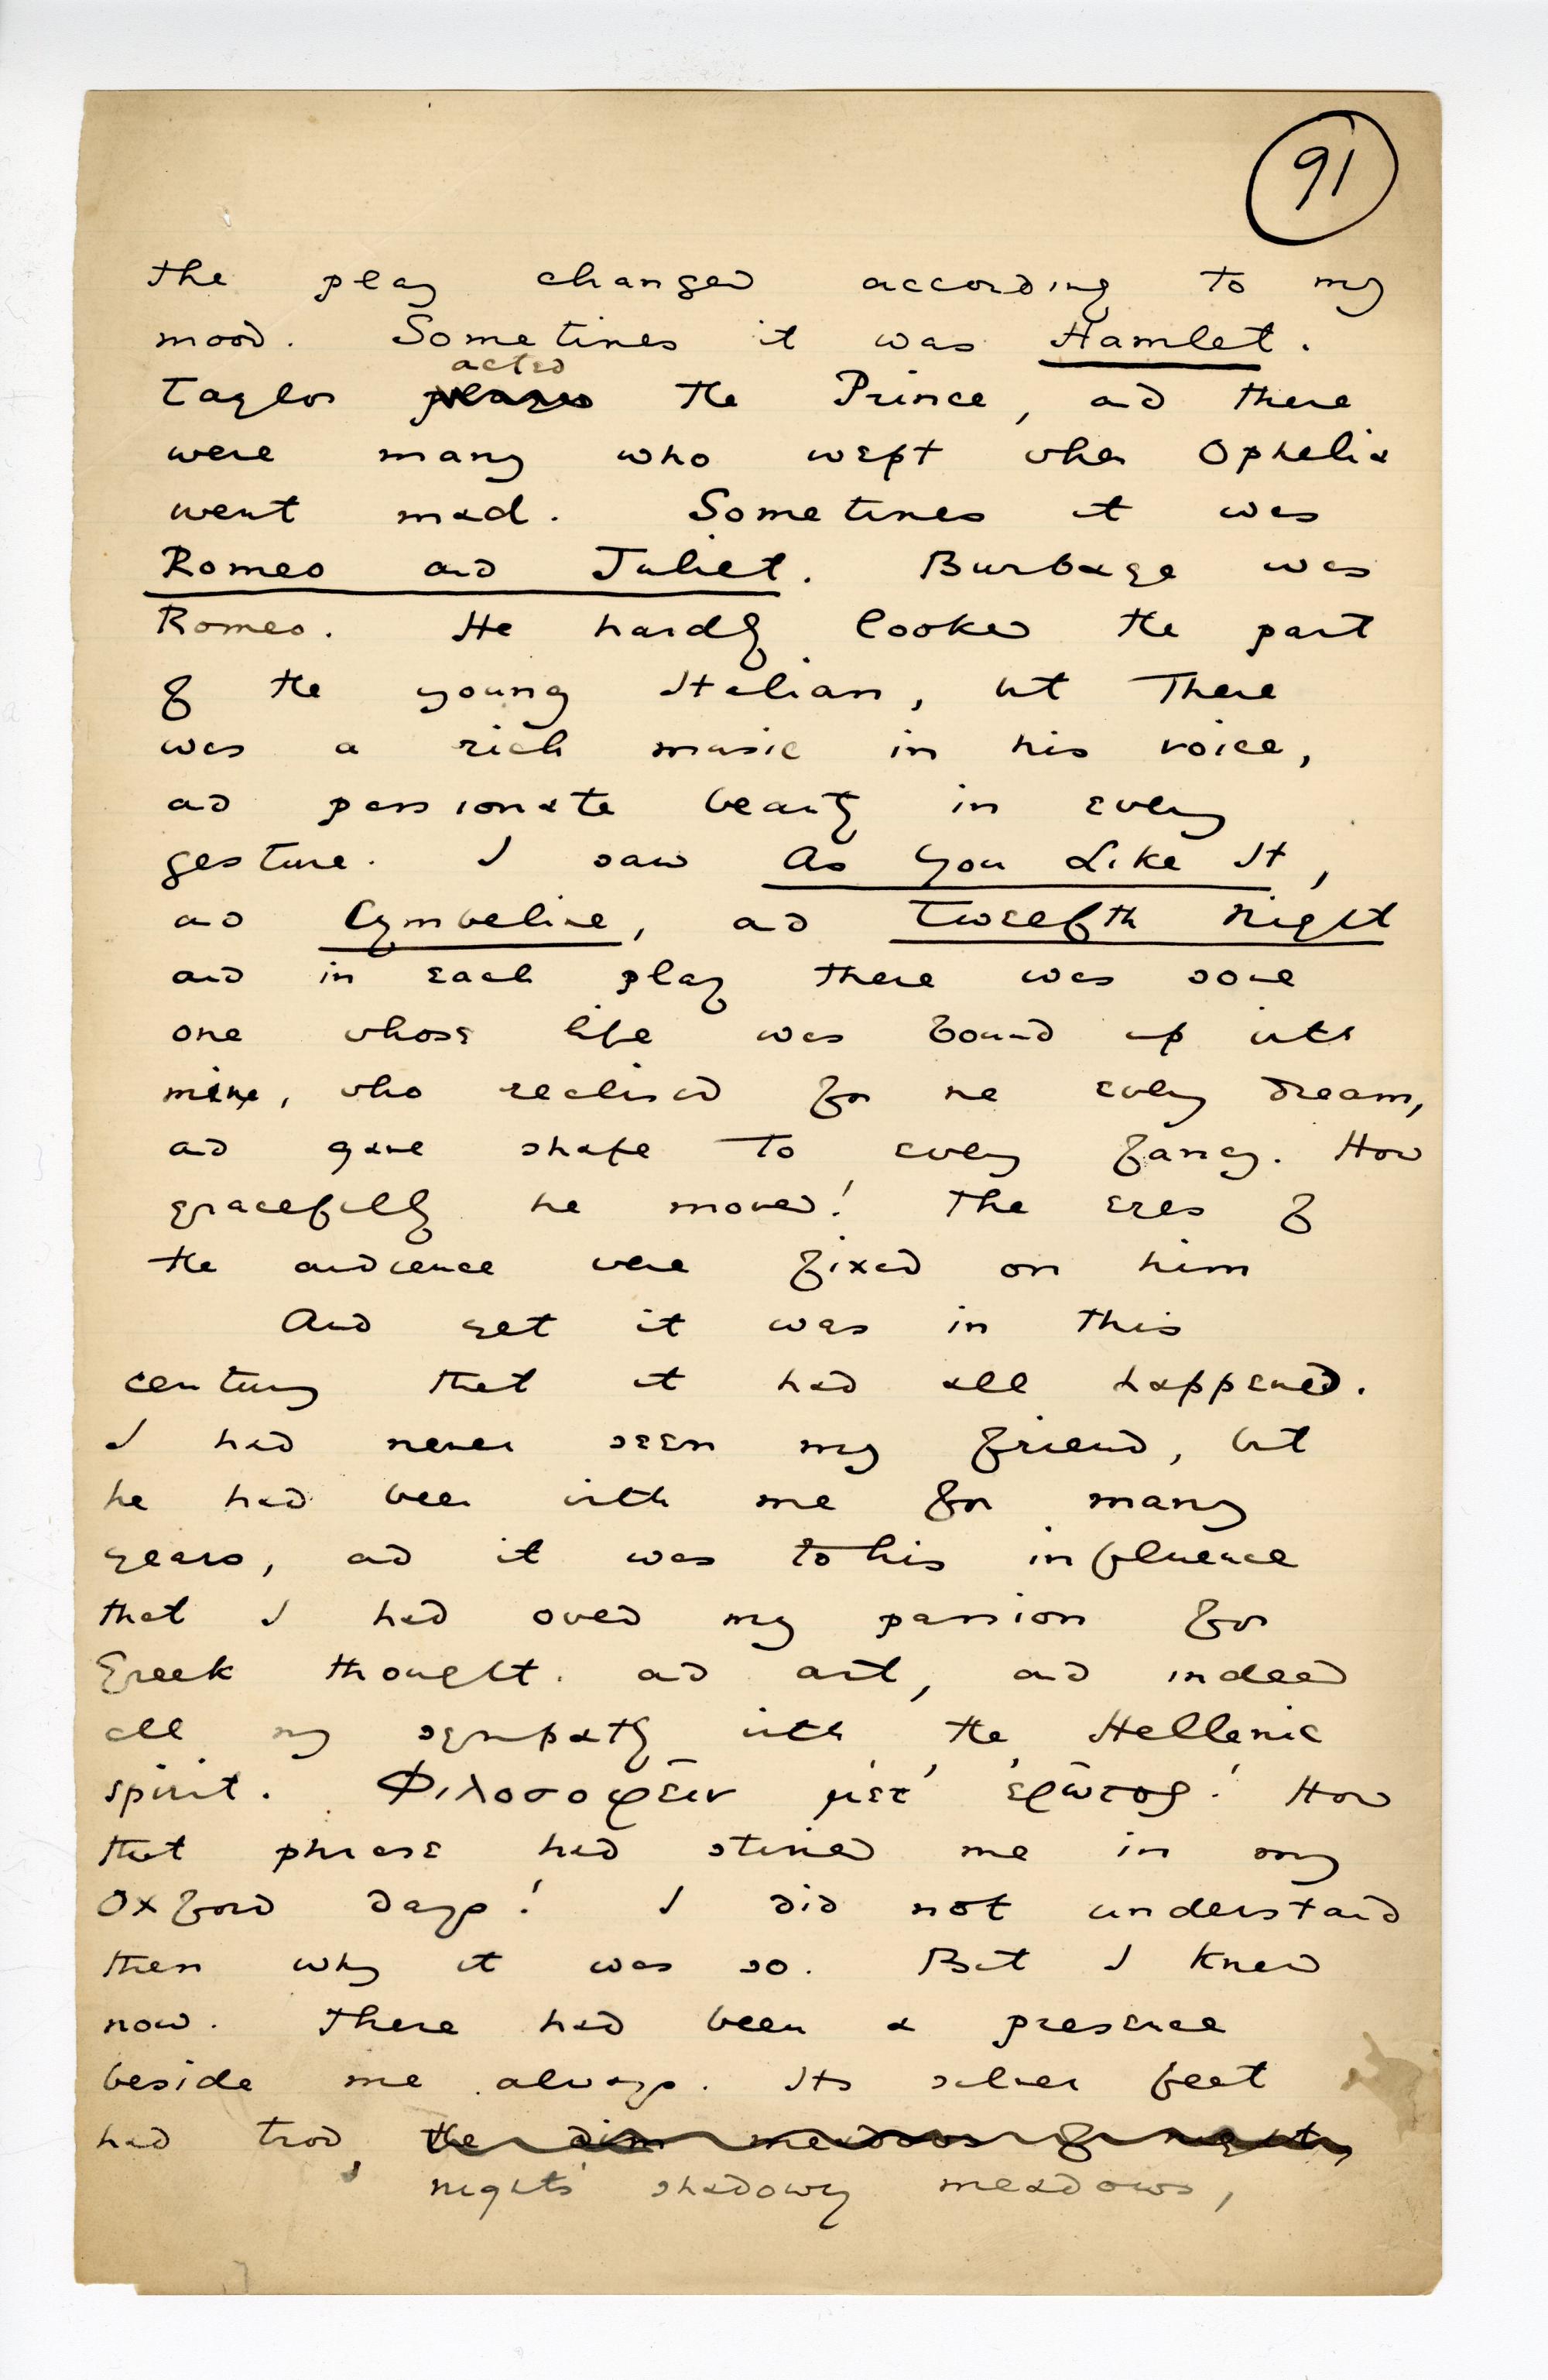 91
the play changed according to my
mood. Sometimes it was Hamlet.
acted
Taylor played the Prince, and there
were many who wept when Ophelia
went mad. Sometimes it was
Romeo and Juliet. Burbage was
Romeo. He hardly looked the part
of the young Italian, but there
was a rich music in his voice,
and passionate beauty in every
gesture. I saw As You Like It,
and Cymbeline, and Twelfth Night
and in each play there was some
one whose life was bound up with
mine, who realised for me every dream,
and gave shape to every fancy. How
gracefully he moved! The eyes of
the audience were fixed on him
And yet it was in this
century that it had all happened.
I had never seen my friend, but
he had been with me for many
years, and it was to his influence
that I had owed my passion for
Greek thought. and art, and indeed
all my sympathy with the Hellenic
spirit. Φιλοσοφεῖν μετ' ἔρωτος! How
that phrase had stirred me in my
Oxford days! I did not understand
then why it was so. But I knew
now. There had been a presence
beside me always. Its silver feet
had trod, the dim meadows of night,
night's shadowy meadows,